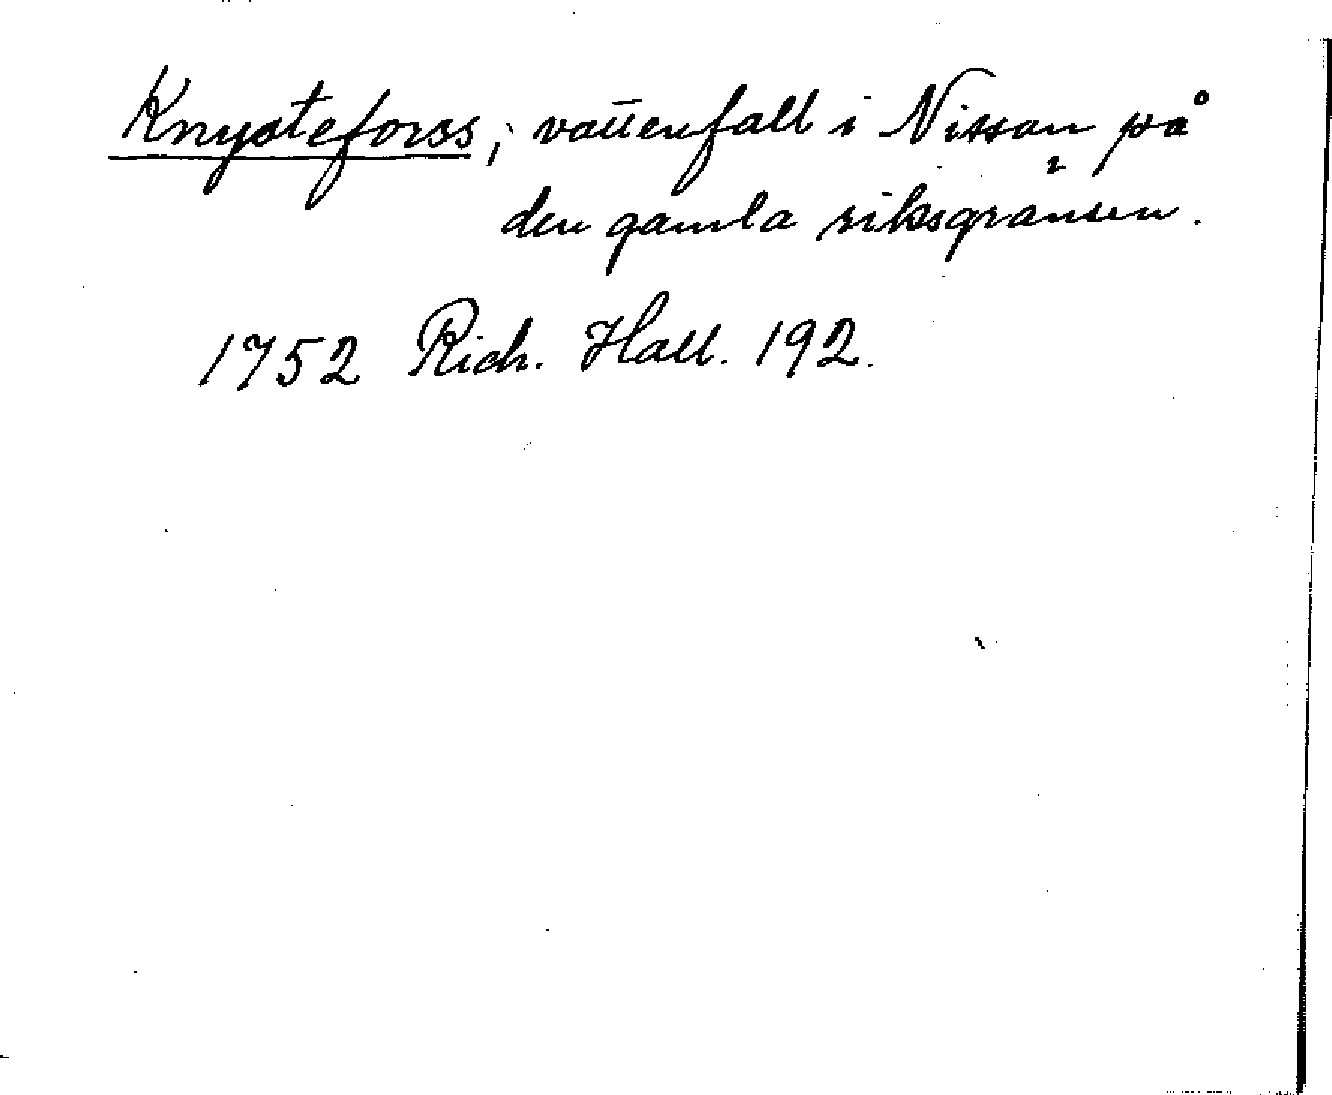 Knysteforss, vattenfall i Nissan på
den gamla riksgränsen.
1752 Rich. Hall. 192.